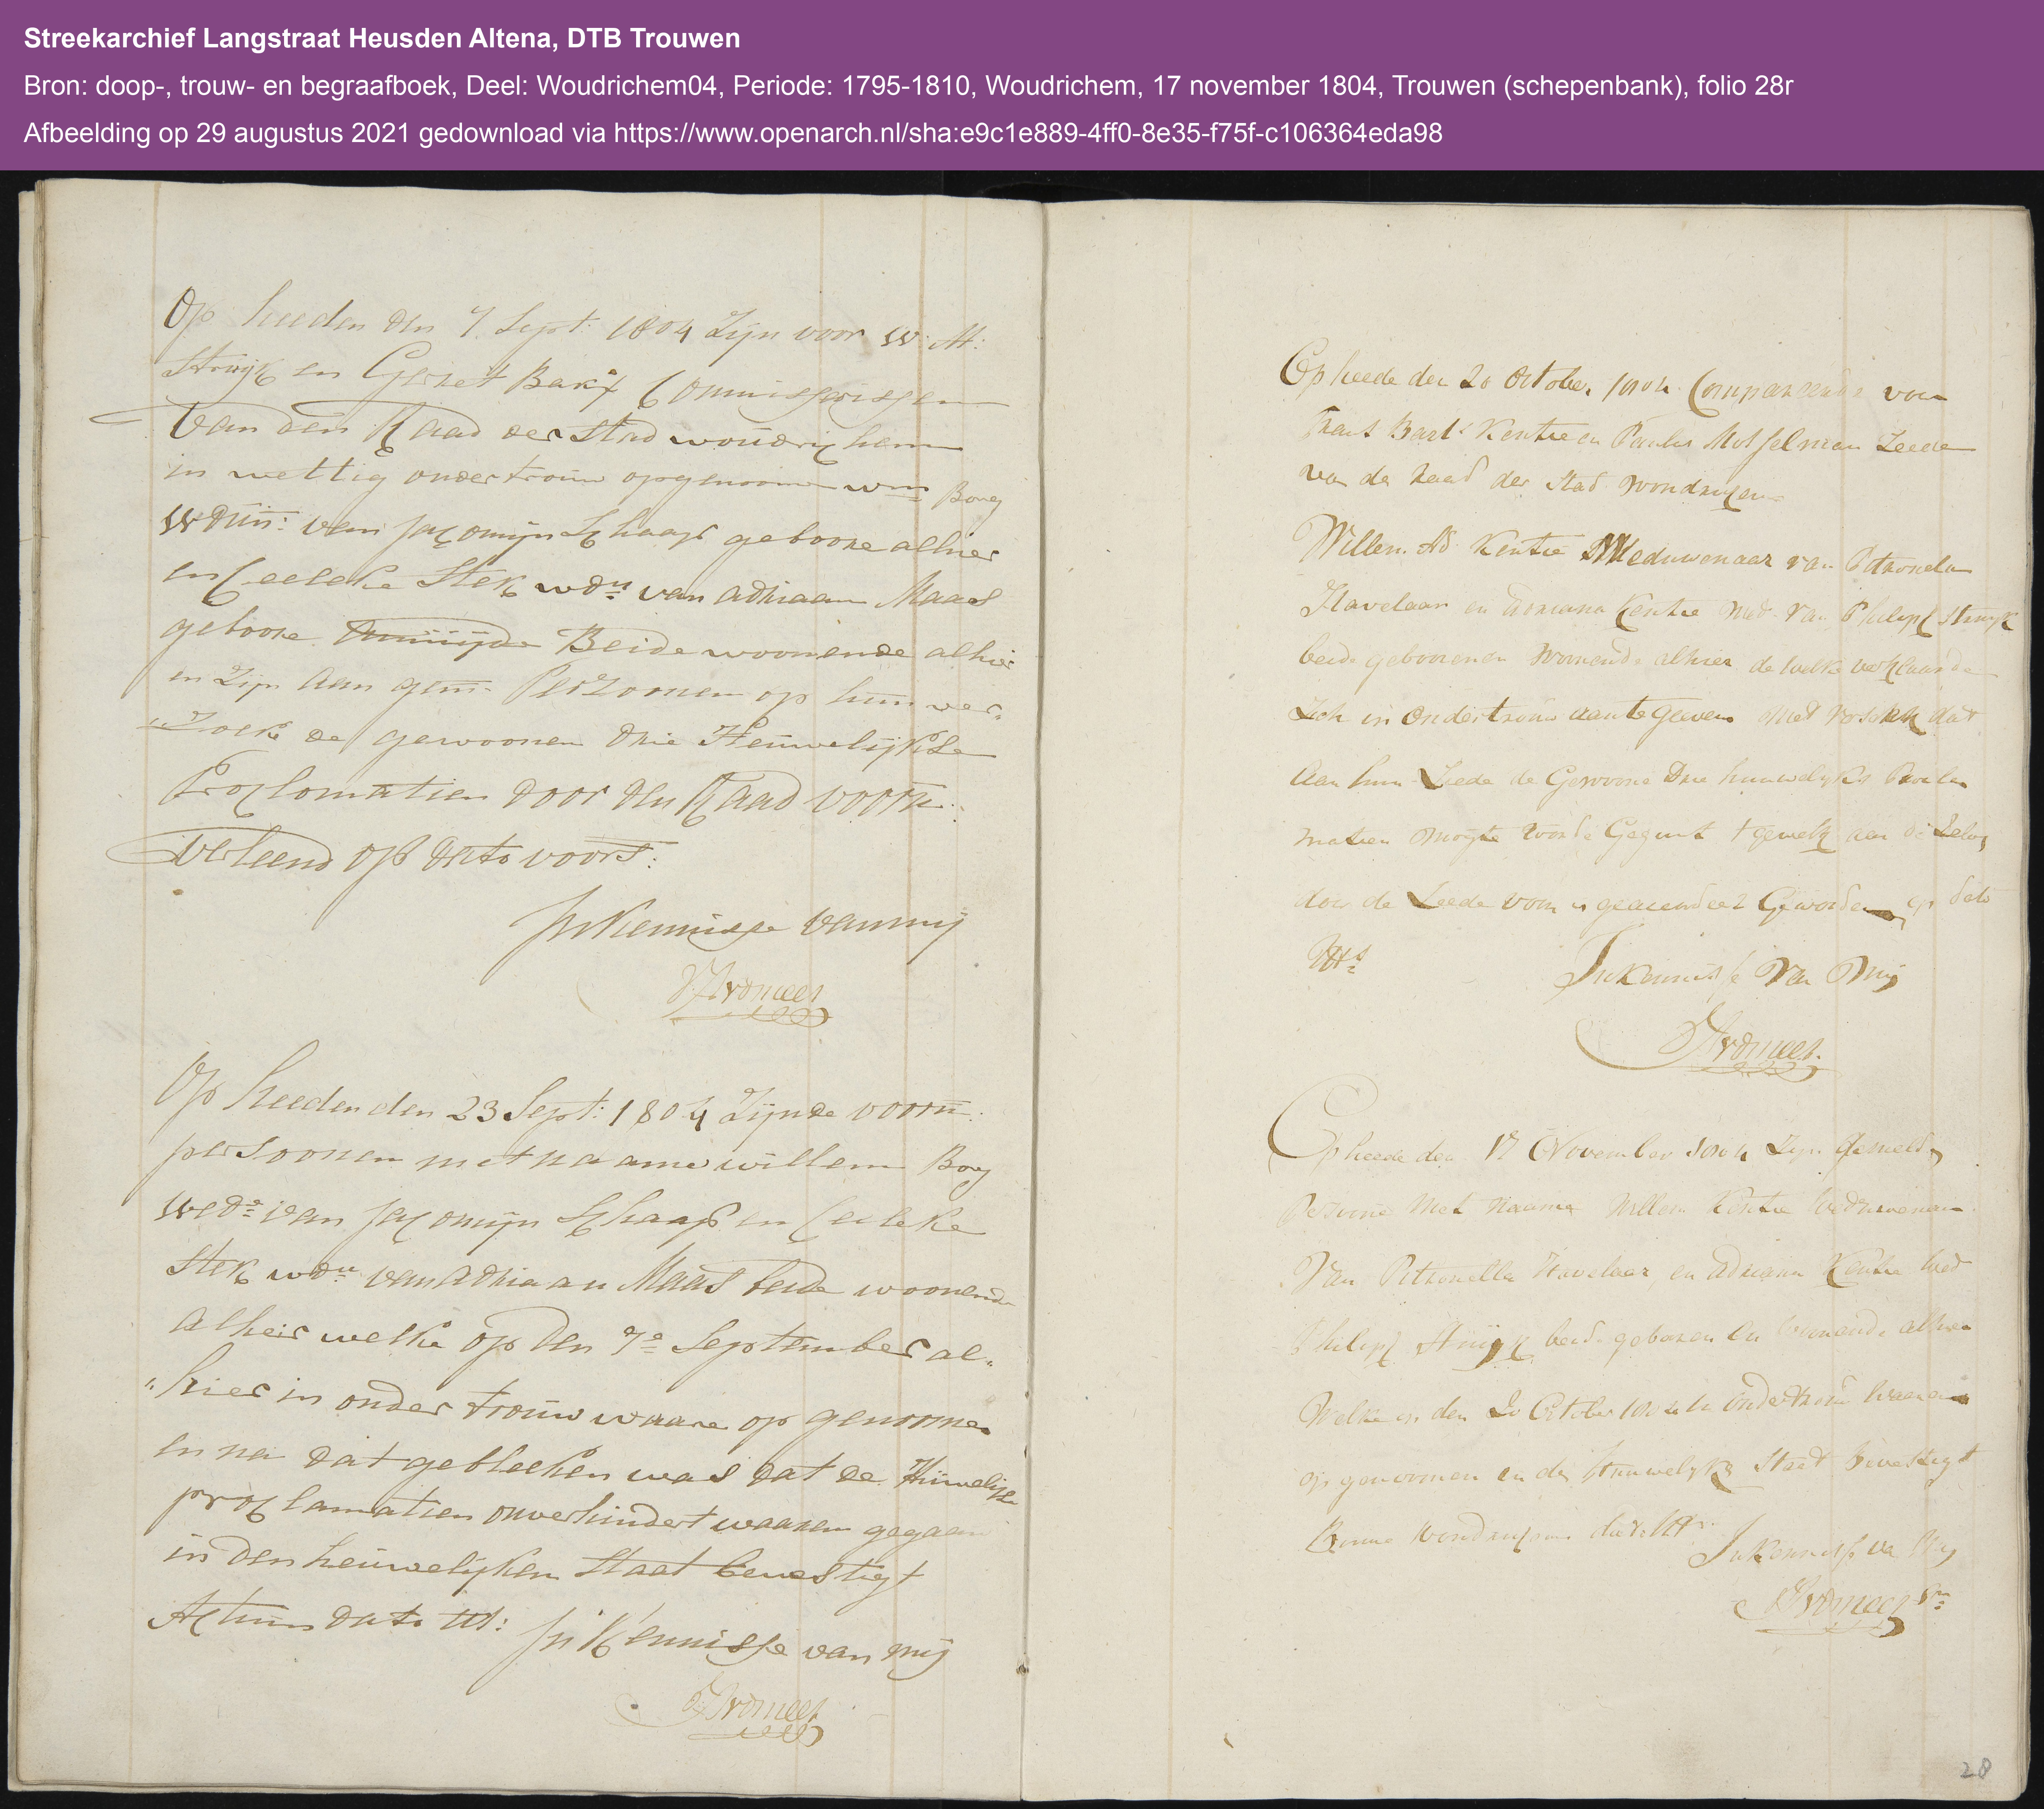 Streekarchief Langstraat Heusden Altena, DTB Trouwen
Bron: doop-, trouw- en begraafboek, Deel: Woudrichem04, Periode: 1795-1810, Woudrichem, 17 november 1804, Trouwen (schepenbank), folio 28r
Afbeelding op 29 augustus 2021 gedownload via https://www.openarch.nl/sha:e9c1e889-4ff0-8e35-f75f-c106364eda98
Op heeden den 7 Sept: 1804 Zijn voor W: At:
Struijk en Gerret Bax Commissarissen
van den Raad der Stad woudrichem
in wettig ondertrouw opgenoomen wm Boug
wdun: van Jacomijn Schaap geboore alhier
en Ceeleke Stek wdu van adriaan Maas
geboore Beide woonende alhier
en Zijn aan gem: Perzoonen op hun ver„
„zoeke de gewoonen drie Heuwelijkse
Proclomatien door den Raad voorn:
verleend op dato voors:
In Kennisse van mij
Op heeden den 23 Sept: 1804 Zijnde voorn:
persoonen met naame willem Boug
wedr van Jacomijn Schaap en Ceeleke
Stek wdu van Adriaan Maas beide woonende
alheir welke op den 7e September al„
„hier in onder trouw waare op genoomen
en na dat gebleeken was dat de Huwelijkse
proclamatien onverhindert waaren gegaan
in den heuwelijken Staat bevestigt
Actum dato ut: In Kennisse van mij
Op heede den 20 October 1804 Compareerde voor
Bart Kentie en Paulus Mosselman Leede
van de Raad der Stad Woudrichem
Willem Ad Kentie Weduwenaar van Petronela
Havelaar en Adriana Kentie Wed van Philip Struijk
beide geboorenen Woonende alhier de welke verklaarde
Zich in Ondertrouw aantegeven met versoek dat
Aan hun Leede de Gewoone Drie huuwelijks Procla
matien mogte worde Gegunt t gewelk aan de Zelve
door de Leede voorn is geaccordeert Geworden op dato
Uts
In Kennisse Van Mij
Op heede den 17 November 1804 Zijn Gemelde
Persoone Met Naame Willem Kentie Weduwenaar
Van Petronella Havelaar en Adriana Kentie Wed
Philip Struijk beide geboren en Woonende alhier
Welke op den 20 October 1804 in Ondertrouw Waaren
op genoomen in den Huuwelijke Staat bevestigt
Woudrichem dato Uts
In Kennisse va Mij
28